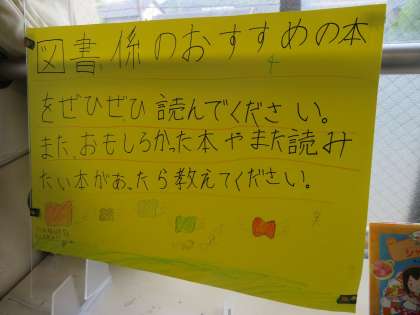 図書係のおすすめの本
をぜひぜひ読んでください。
また、おもしろかった本やまた読み
たい本があったら教えてください。